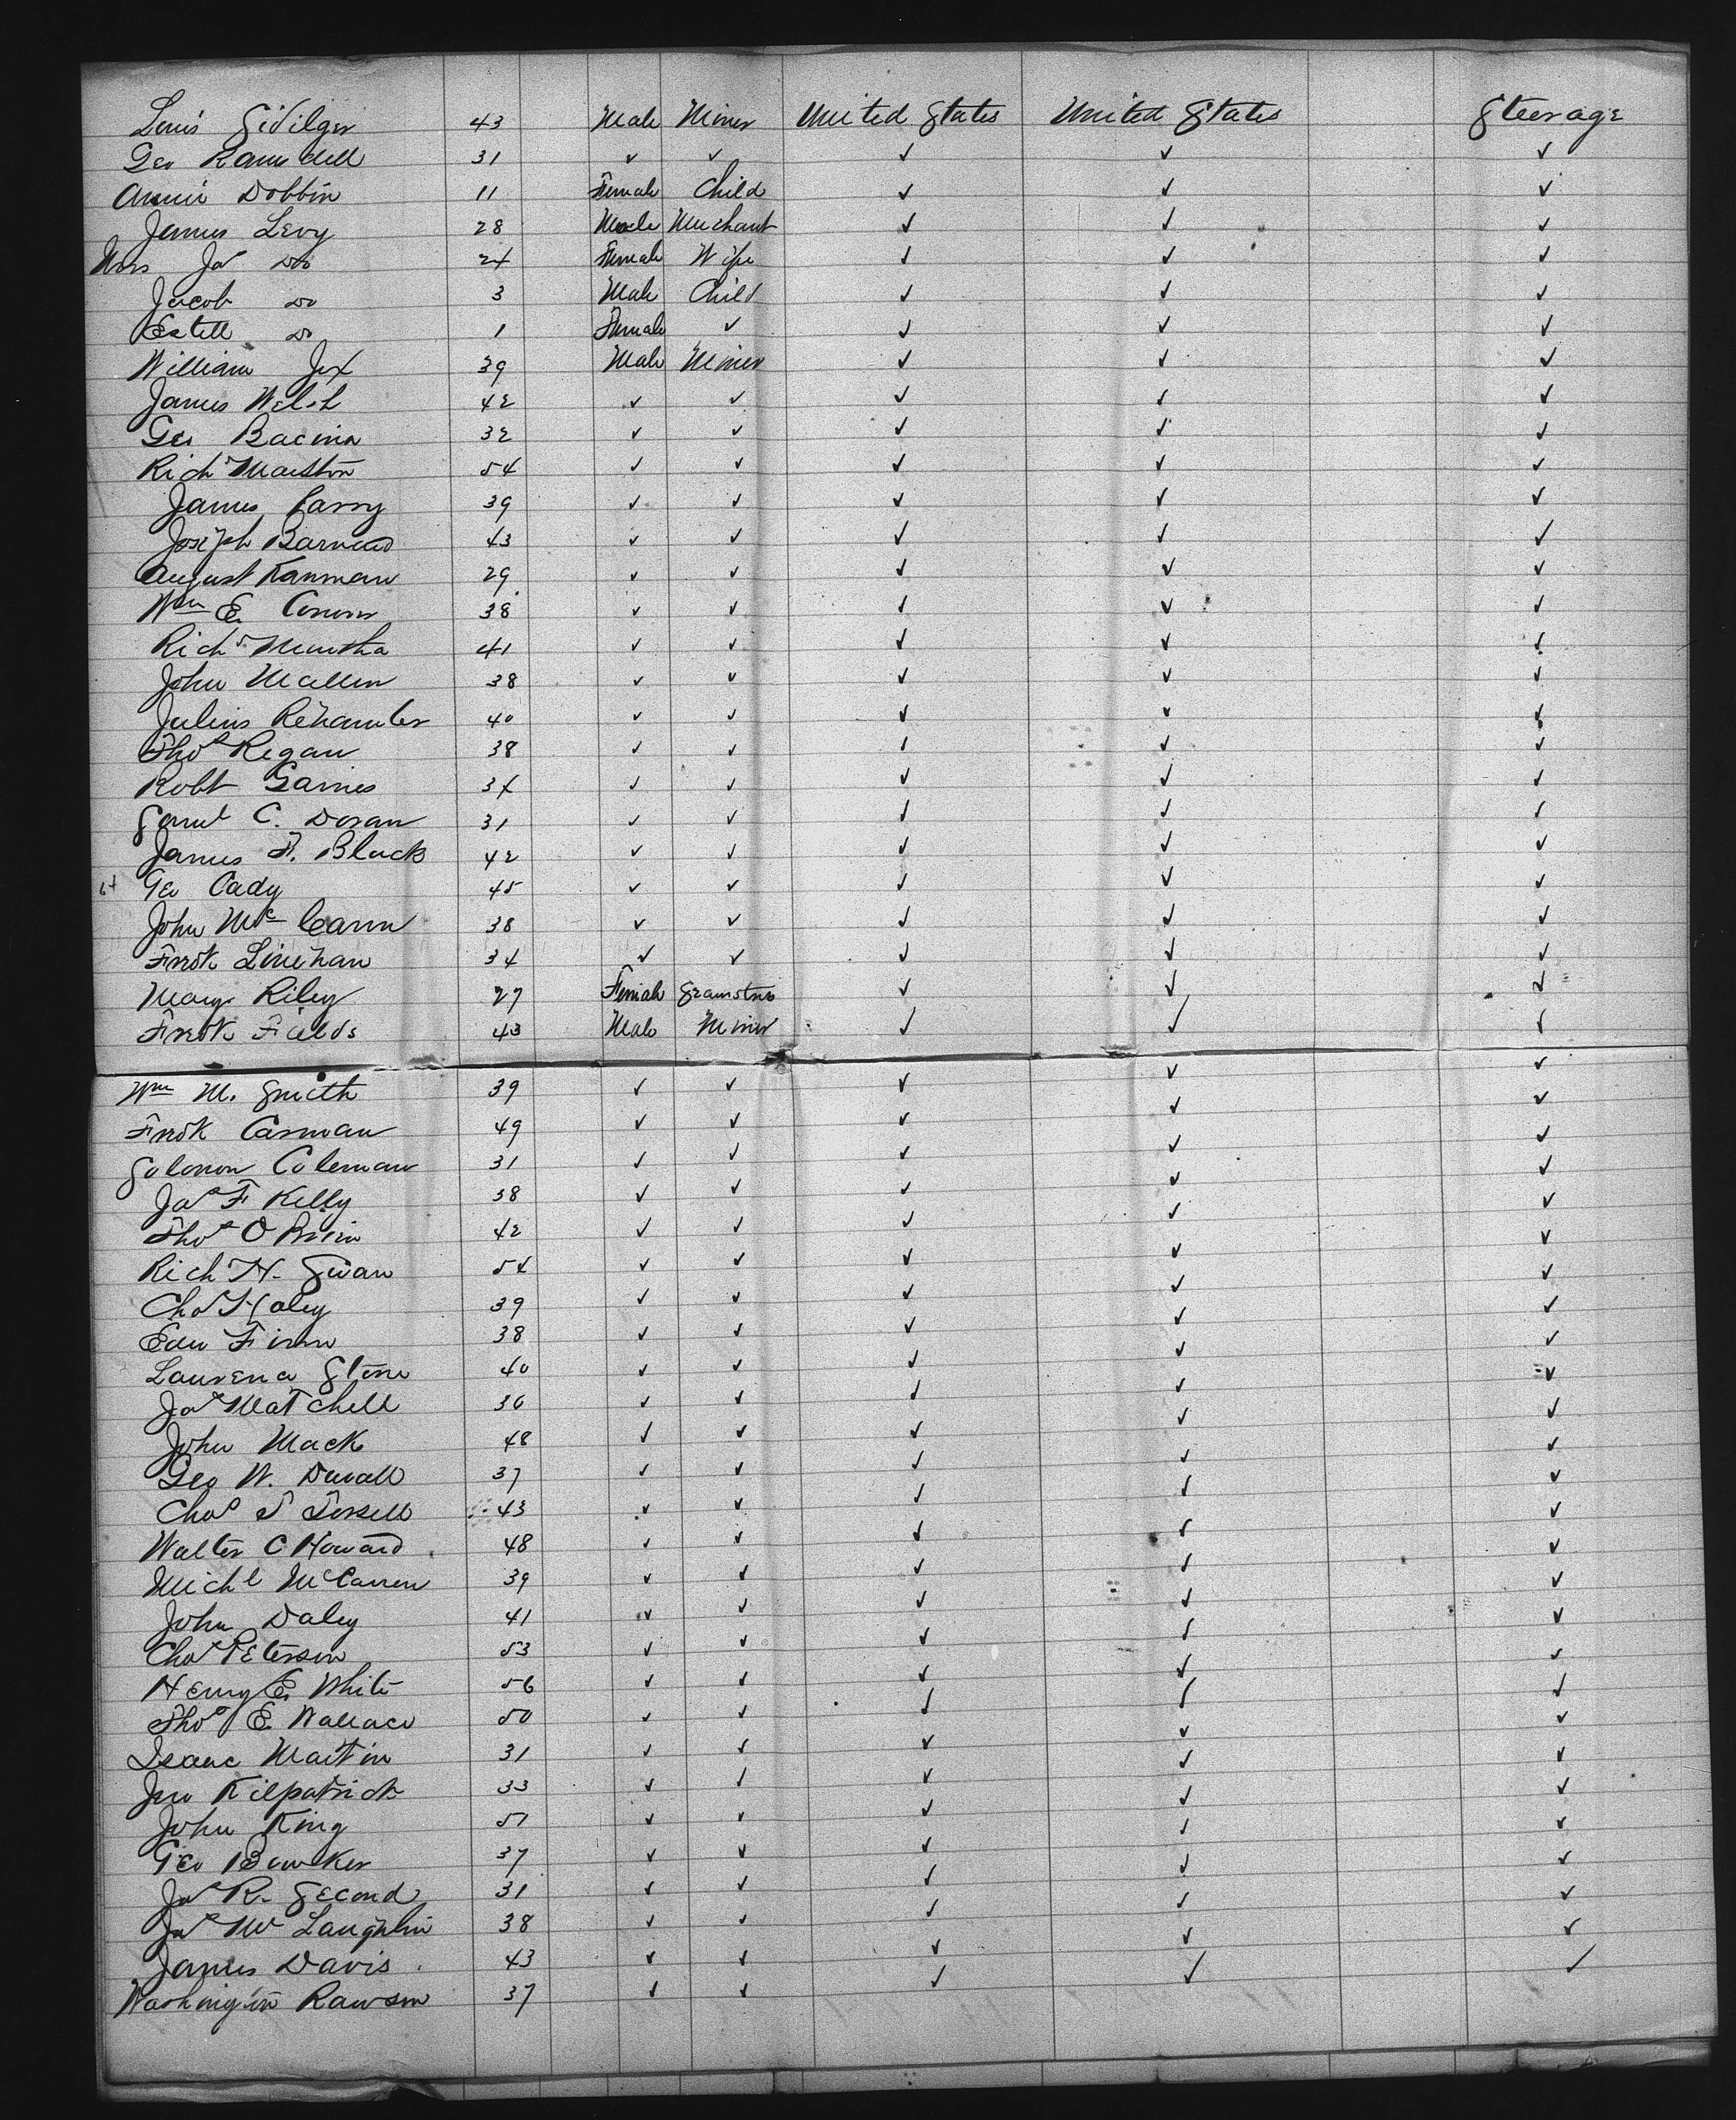 Louis 43 Male Miner United States United States Steerage
Geo Ramsdell 31 ✓ ✓ ✓ ✓ ✓
Annie Dobbin 11 Female Child ✓ ✓ ✓
James Levy 28 Male Merchant ✓ ✓ ✓
Mrs Jas Do 24 Female Wife ✓ ✓ ✓
Jacob Do 3 Male Child ✓ ✓ ✓
Estell Do 1 Female ✓ ✓ ✓ ✓
William Jex 39 Male Miner ✓ ✓ ✓
James Welsh 42 ✓ ✓ ✓ ✓ ✓
Geo Bacina 32 ✓ ✓ ✓ ✓ ✓
Richd Marston 54 ✓ ✓ ✓ ✓ ✓
James Parry 39 ✓ ✓ ✓ ✓ ✓
Joseph Barnard 43 ✓ ✓ ✓ ✓ ✓
August Kanman 29 ✓ ✓ ✓ ✓ ✓
Wm E. Connor 38 ✓ ✓ ✓ ✓ ✓
Richd Murtha 41 ✓ ✓ ✓ ✓ ✓
John Mallen 38 ✓ ✓ ✓ ✓ ✓
Julius 40 ✓ ✓ ✓ ✓ ✓
Thos Regan 38 ✓ ✓ ✓ ✓ ✓
Robt Gaines 34 ✓ ✓ ✓ ✓ ✓
Saml C. Doran 31 ✓ ✓ ✓ ✓ ✓
James F. Black 42 ✓ ✓ ✓ ✓ ✓
Geo Cady 45 ✓ ✓ ✓ ✓ ✓
John McCann 38 ✓ ✓ ✓ ✓ ✓
Fredk Linehan 34 ✓ ✓ ✓ ✓ ✓
Mary Riley 27 Female Seamstress ✓ ✓ ✓
Fredk Fields 43 Male Miner ✓ ✓ ✓
Wm M. Smith 39 ✓ ✓ ✓ ✓ ✓
Fredk Carman 49 ✓ ✓ ✓ ✓ ✓
Solomon Coleman 31 ✓ ✓ ✓ ✓ ✓
Jas F Kelly 38 ✓ ✓ ✓ ✓ ✓
Thos O Brien 42 ✓ ✓ ✓ ✓ ✓
Rich H. Swan 54 ✓ ✓ ✓ ✓ ✓
Chas Haley 39 ✓ ✓ ✓ ✓ ✓
Edw Finn 38 ✓ ✓ ✓ ✓ ✓
Laurence Stone 40 ✓ ✓ ✓ ✓ ✓
Jas Matchell 36 ✓ ✓ ✓ ✓ ✓
John Mack 48 ✓ ✓ ✓ ✓ ✓
Geo W. Duvall 37 ✓ ✓ ✓ ✓ ✓
Chas 43 ✓ ✓ ✓ ✓ ✓
Walter C Howard 48 ✓ ✓ ✓ ✓ ✓
Michl McCarren 39 ✓ ✓ ✓ ✓ ✓
John Daley 41 ✓ ✓ ✓ ✓ ✓
Chas Peterson 53 ✓ ✓ ✓ ✓ ✓
Henry E. White 56 ✓ ✓ ✓ ✓ ✓
Thos E. Wallace 50 ✓ ✓ ✓ ✓ ✓
Isaac Martin 31 ✓ ✓ ✓ ✓ ✓
Jno Kilpatrick 33 ✓ ✓ ✓ ✓ ✓
John King 51 ✓ ✓ ✓ ✓ ✓
Geo Bowker 37 ✓ ✓ ✓ ✓ ✓
Jas R. Second 31 ✓ ✓ ✓ ✓ ✓
Jas McLaughlin 38 ✓ ✓ ✓ ✓ ✓
James Davis 43 ✓ ✓ ✓ ✓ ✓
Washington Rawson 37 ✓ ✓ ✓ ✓ ✓